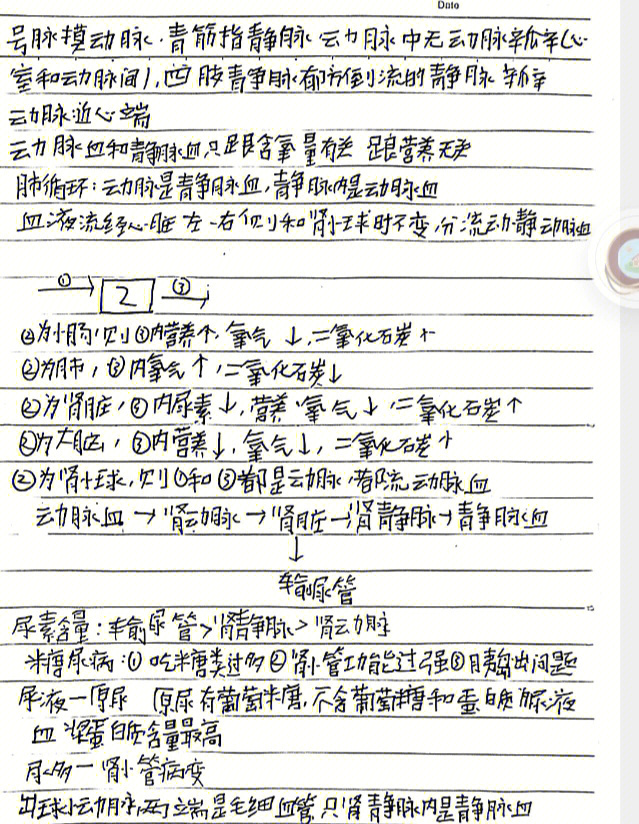 Dato
号脉摸动脉.青筋指静脉 动脉中无动脉瓣(心
室和动脉间),四肢静脉都有防倒流的静脉瓣
动脉近心端
动脉血和静脉血只跟含氧量有关 跟营养无关
肺循环:动脉是静脉血,静脉内是动脉血
血液流经心脏左-右侧和肾小球时不变,分流动静动脉血
① 2 ③
②为小肠,则③内营养↑,氧气↓,二氧化石炭↑
②为肺,③内氧气↑,二氧化石炭↓
②为肾脏,③内尿素↓,营养、氧气↓,二氧化石炭↑
②为大脑,③内营养↓,氧气↓,二氧化石炭↑
②为肾小球,则①和③都是动脉,都流动脉血
动脉血→肾动脉→肾脏→肾静脉→静脉血
↓
输尿管
尿素含量:输尿管>肾静脉>肾动脉
米唐尿病:①吃米唐类过多②肾小管功能过强③胰岛出问题
尿液一原尿 原尿有葡萄米唐,不含葡萄糖和蛋白质尿液
血浆蛋白质含量最高
尿多一肾小管病变
出球小动脉,两端是毛细血管,只肾静脉内是静脉血